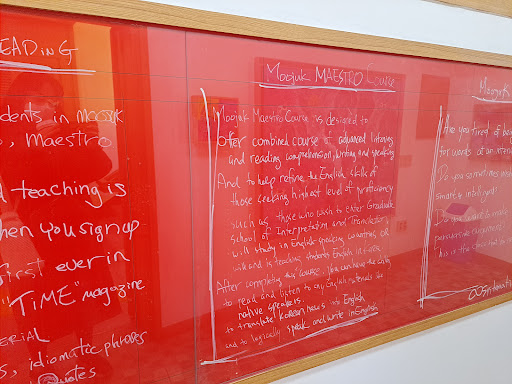 EADING
dents in MOOJUK
, Maestro
d teaching is
hen you sign up
first ever in
"TIME" magazine
ERIAL
s, idiomatic phrases
Quotes
Moojuk MAESTRO Course
Moojuk Maestro Course is designed to
offer combined course of advanced listening
and reading comprehension, writing and speaking
And to help refine the English skills of
those seeking highest level of proficiency
such as those who wish to enter Graduate
School of Interpretation and Translation,
will study in English speaking countries, or
is teaching students English
After completing the course, you can have the ability
to read and listen to any English materials like
native speakers.
to translate Korean news into English
and to logically speak and write in English
Moojuk
Are you tired of bei
for words of an inter
Do you sometimes wish
Smart or intelligent?
Do you want to make
persuasive
This is the